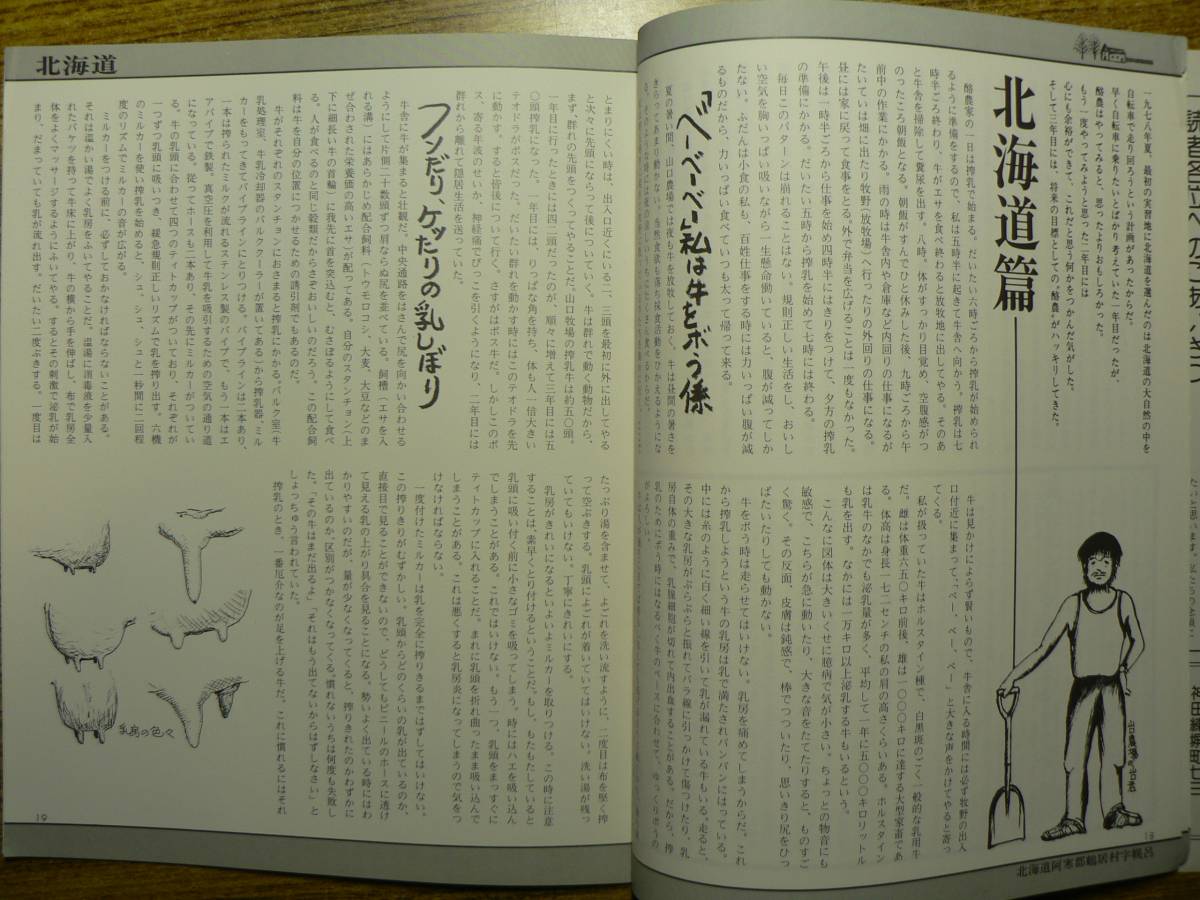 北海道篇
一九七八年夏、最初の実習地に北海道を選んだのは北海道の大自然の中を
自転車で走り回ろうという計画があったからだ。
早く自転車に乗りたいとばかり考えていた一年目だったが、
酪農はやってみると、思ったよりおもしろかった。
もう一度やってみようと思った二年目には
心にも余裕ができて、これだと思う何かをつかんだ気がした。
そして三年目には、将来の目標としての“酪農”がハッキリしてきた。
酪農家の一日は搾乳で始まる。だいたい六時ごろから搾乳が始められ
るように準備をするので、私は五時半に起きて牛舎へ向かう。搾乳は七
時半ごろ終わり、牛がエサを食べ終わると放牧地に出してやる。そのあ
と牛舎を掃除して糞尿を出す。八時、体がすっかり目覚め、空腹感がつ
のったころ朝飯となる。朝飯がすんでひと休みした後、九時ごろから午
前中の作業にかかる。雨の時は牛舎内や倉庫など内回りの仕事になるが
たいていは畑に出たり牧野(放牧場)へ行ったりの外回りの仕事になる。
昼には家に戻って食事をとる。外で弁当を広げることは一度もなかった。
午後は一時半ごろから仕事を始め四時半にはけりをつけて、夕方の搾乳
の準備にかかる。だいたい五時から搾乳を始めて七時には終わる。
毎日このパターンは崩れることはない。規則正しい生活をし、おいし
い空気を胸いっぱい吸いながら一生懸命働いていると、腹が減ってしか
たない。ふだんは小食の私も、百姓仕事をする時にはいっぱい腹が減
るものだから、力いっぱい食べていつも太って帰って来る。
「ベーベーベー」私は牛をボう係
夏の暑い間、山口農場では夜も牛を放牧しておく。牛は昼間の暑さを
きらってあまり動かない。当然食欲も落ち採食活動をひかえるようにな
牛は見かけによらず賢いもので、牛舎に入る時間には必ず牧野の出入
口付近に集まって、「ベー、ベー、ベー」と大きな声をかけてやると寄っ
てくる。
私が扱っていた牛はホルスタイン種で、白黒斑のごく一般的な乳用牛
だ。雌は体重六五〇キロ前後、雄は一〇〇〇キロに達する大型家畜であ
る。体高は身長一七二センチの私の肩の高さくらいある。ホルスタイン
は乳牛のなかでも泌乳量が多く、平均して一年に五〇〇〇キロリットル
も乳を出す。なかには一万キロ以上泌乳する牛もいるという。
こんなに図体は大きいくせに臆病で気が小さい。ちょっとの物音にも
敏感で、こちらが急に動いたり、大きな音をたてたりすると、ものすご
く驚く。その反面、皮膚は鈍感で、棒でつついたり、思いきり尻をひっ
ぱたいたりしても動かない。
牛をボう時は走らせてはいけない。乳房を痛めてしまうからだ。これ
から搾乳しようという牛の乳房は乳で満たされパンパンにはっている。
中には糸のように白く細い線を引いて乳が漏れている牛もいる。走ると、
その大きな乳房がぶらぶらと揺れてバラ線に引っかけて傷つけたり、乳
房自体の重みで、乳腺細胞が切れて内出血することがある。だから、搾
乳のためにボう時にはなるべく牛のペースに合わせて、ゆっくりボうの
がよろしい。
18
北海道阿寒郡鶴居村字幌呂
北海道
とまりにくい時は、出入口近くにいる二、三頭を最初に外に出してやる
と次々に先頭にならって後についていく。牛は群れで動く動物だから、
まず、群れの先頭をつくってやることだ。山口牧場の搾乳牛は約五〇頭。
一年目に行ったときには四二頭だったのが、順々に増えて三年目には五
〇頭搾乳になった。一年目には、りっぱな角を持ち、体も人一倍大きい
テオドラがボスだった。だいたい群れを動かす時にはこのテオドラを先
に動かす。すると皆後について行く。さすがはボス牛だ。しかしこのボ
ス、寄る年波のせいか、神経痛でびっこを引くようになり、二年目には
群れから離れて隠居生活を送っていた。
フンだり、ケッたりの乳しぼり
牛舎に牛が集まると壮観だ。中央通路をはさんで尻を向かい合わせる
ようにして片側二十数頭ずつ肩ならぬ尻を並べている。飼槽(エサを入
れる溝)にはあらかじめ配合飼料(トウモロコシ、大麦、大豆などのま
ぜ合わされた栄養価の高いエサ)が配ってある。自分のスタンチョン(上
下に細長い牛の首輪)に我先に首を突込むと、むさぼるようにして食べ
る。人が食べるのと同じ穀類だからさぞおいしいのだろう。この配合飼
料は牛を自分の位置につかせるための誘引剤でもあるのだ。
牛がそれぞれのスタンチョンにおさまると搾乳にかかる。バルク室(牛
乳処理室、牛乳冷却器のバルククーラーが置いてある)から搾乳器、ミル
カーをもってきてパイプラインにとりつける。パイプラインは二本あり、
一本は搾られたミルクが流れるステンレス製のパイプで、もう一本はエ
アパイプで鉄製。真空圧を利用して牛乳を吸するための空気の通り道
になっている。従ってホースも二本あり、その先にミルカーがついてい
る。牛の乳頭に合わせて四つのティトカップがついており、それぞれが
一つずつ乳頭に吸いつき、緩急規則正しいリズムで乳を搾り出す。六機
のミルカーを使い搾乳を始める。シュ、シュ、シュと一秒間に二回程
度のリズムでミルカーの音が広がる。
ミルカーをつける前に、必ずしておかなければならないことがある。
それは温かい湯でよく乳房をふいてやることだ。温湯に消毒液を少量入
れたバケツを持って牛床に上がり、牛の横から手を伸ばし、布で乳房全
体をよくマッサージするようにふいてやる。するとその刺激で泌乳が始
まり、だまっていても乳が流れ出す。だいたい二度ぶきする。一度目は
たっぷり湯を含ませて、よごれを洗い流すように、二度目は布を堅く搾
って空ぶきする。乳頭によごれが着いていてはいけない。洗い湯が残っ
ていてもいけない。丁寧にきれいにする。
乳房がきれいになるといよいよミルカーを取りつける。この時に注意
することは、素早くとり付けるということだ。もし、もたもたしていると
乳頭に吸い付く前に小さなゴミを吸ってしまう。時にはハエを吸い込ん
でしまうことがある。これではいけない。もう一つ、乳頭をまっすぐに
ティトカップに入れることだ。まれに乳頭を折れ曲ったまま吸い込んで
しまうことがある。これは悪くすると乳房炎になってしまうので気をつ
けなければならない。
一度付けたミルカーは乳を完全に搾りきるまではずしてはいけない。
この搾りきりがむずかしい。乳頭からどのくらいの乳が出ているのか、
直接目で見ることができないので、どうしてもビニールのホースに透け
て見える乳の上がり具合を見ることになる。勢いよく出ている時にはわ
かりやすいのだが、量が少なくなってくると、搾りきれたのかわずかに
出ているのか、区別がつかなくなってくる。慣れないうちは何度も失敗し
た。「その牛はまだ出るよ」「それはもう出てないからはずしなさい」と
しょっちゅう言われていた。
搾乳のとき、一番厄介なのが足を上げる牛だ。これに慣れるにはそれ
乳房の色々
19